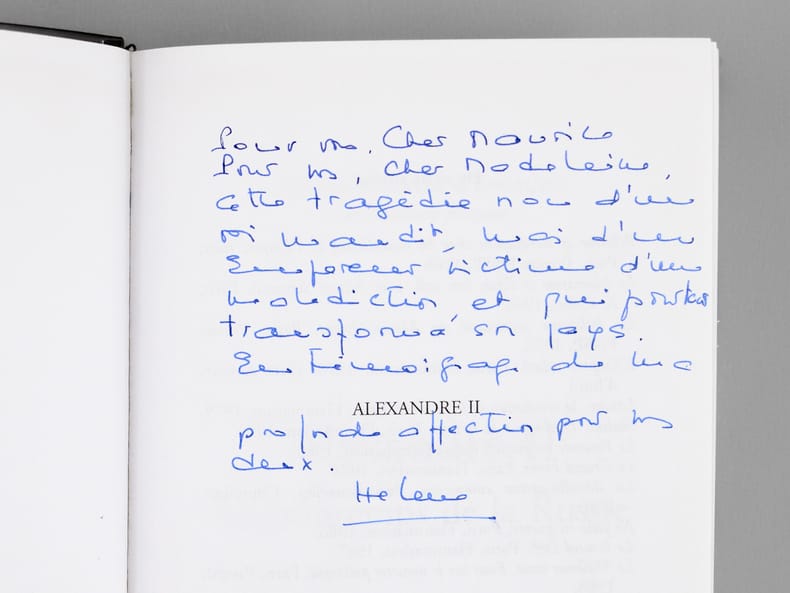 Pour vous, Cher Maurice
Pour vous, Cher Madeleine,
cette tragédie non d'un
roi maudit, mais d'un
Empereur victime d'une
malédiction, et qui pourtant
transforma son pays.
En témoignage de ma
ALEXANDRE II
profonde affection pour vous
deux.
Helene